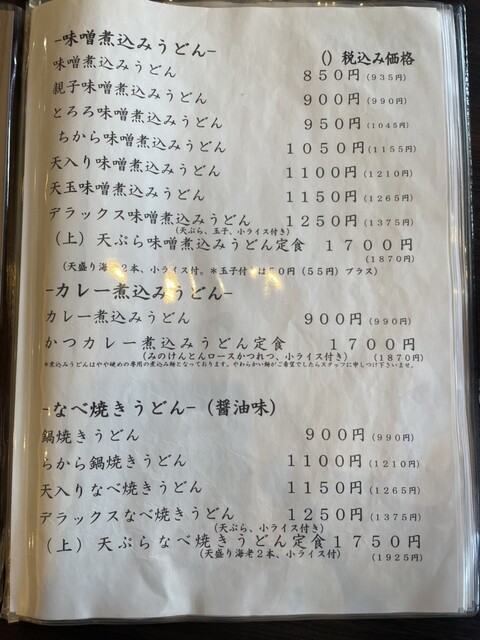 -味噌煮込みうどん-
() 税込み価格
味噌煮込みうどん 850円(935円)
親子味噌煮込みうどん 900円(990円)
とろろ味噌煮込みうどん 950円(1045円)
ちから味噌煮込みうどん 1050円(1155円)
天入り味噌煮込みうどん 1100円(1210円)
天玉味噌煮込みうどん 1150円(1265円)
デラックス味噌煮込みうどん 1250円(1375円)
(天ぷら、玉子、小ライス付き)
(上)天ぷら味噌煮込みうどん定食 1700円
(1870円)
(天盛り海老2本、小ライス付。*玉子付 は50円(55円)プラス)
-カレー煮込みうどん-
カレー煮込みうどん 900円(990円)
かつカレー煮込みうどん定食 1700円
(みのけんとんロースかつれつ、小ライス付き) (1870円)
*煮込みうどんはやや硬めの専用の煮込み麺となっております。やわらかい麺がご希望でしたらスタッフに申しつけ下さいませ。
-なべ焼きうどん-(醤油味)
鍋焼きうどん 900円(990円)
ちから鍋焼きうどん 1100円(1210円)
天入りなべ焼きうどん 1150円(1265円)
デラックスなべ焼きうどん 1250円(1375円)
(天ぷら、小ライス付き)
(上)天ぷらなべ焼きうどん定食 1750円
(天盛り海老2本、小ライス付) (1925円)